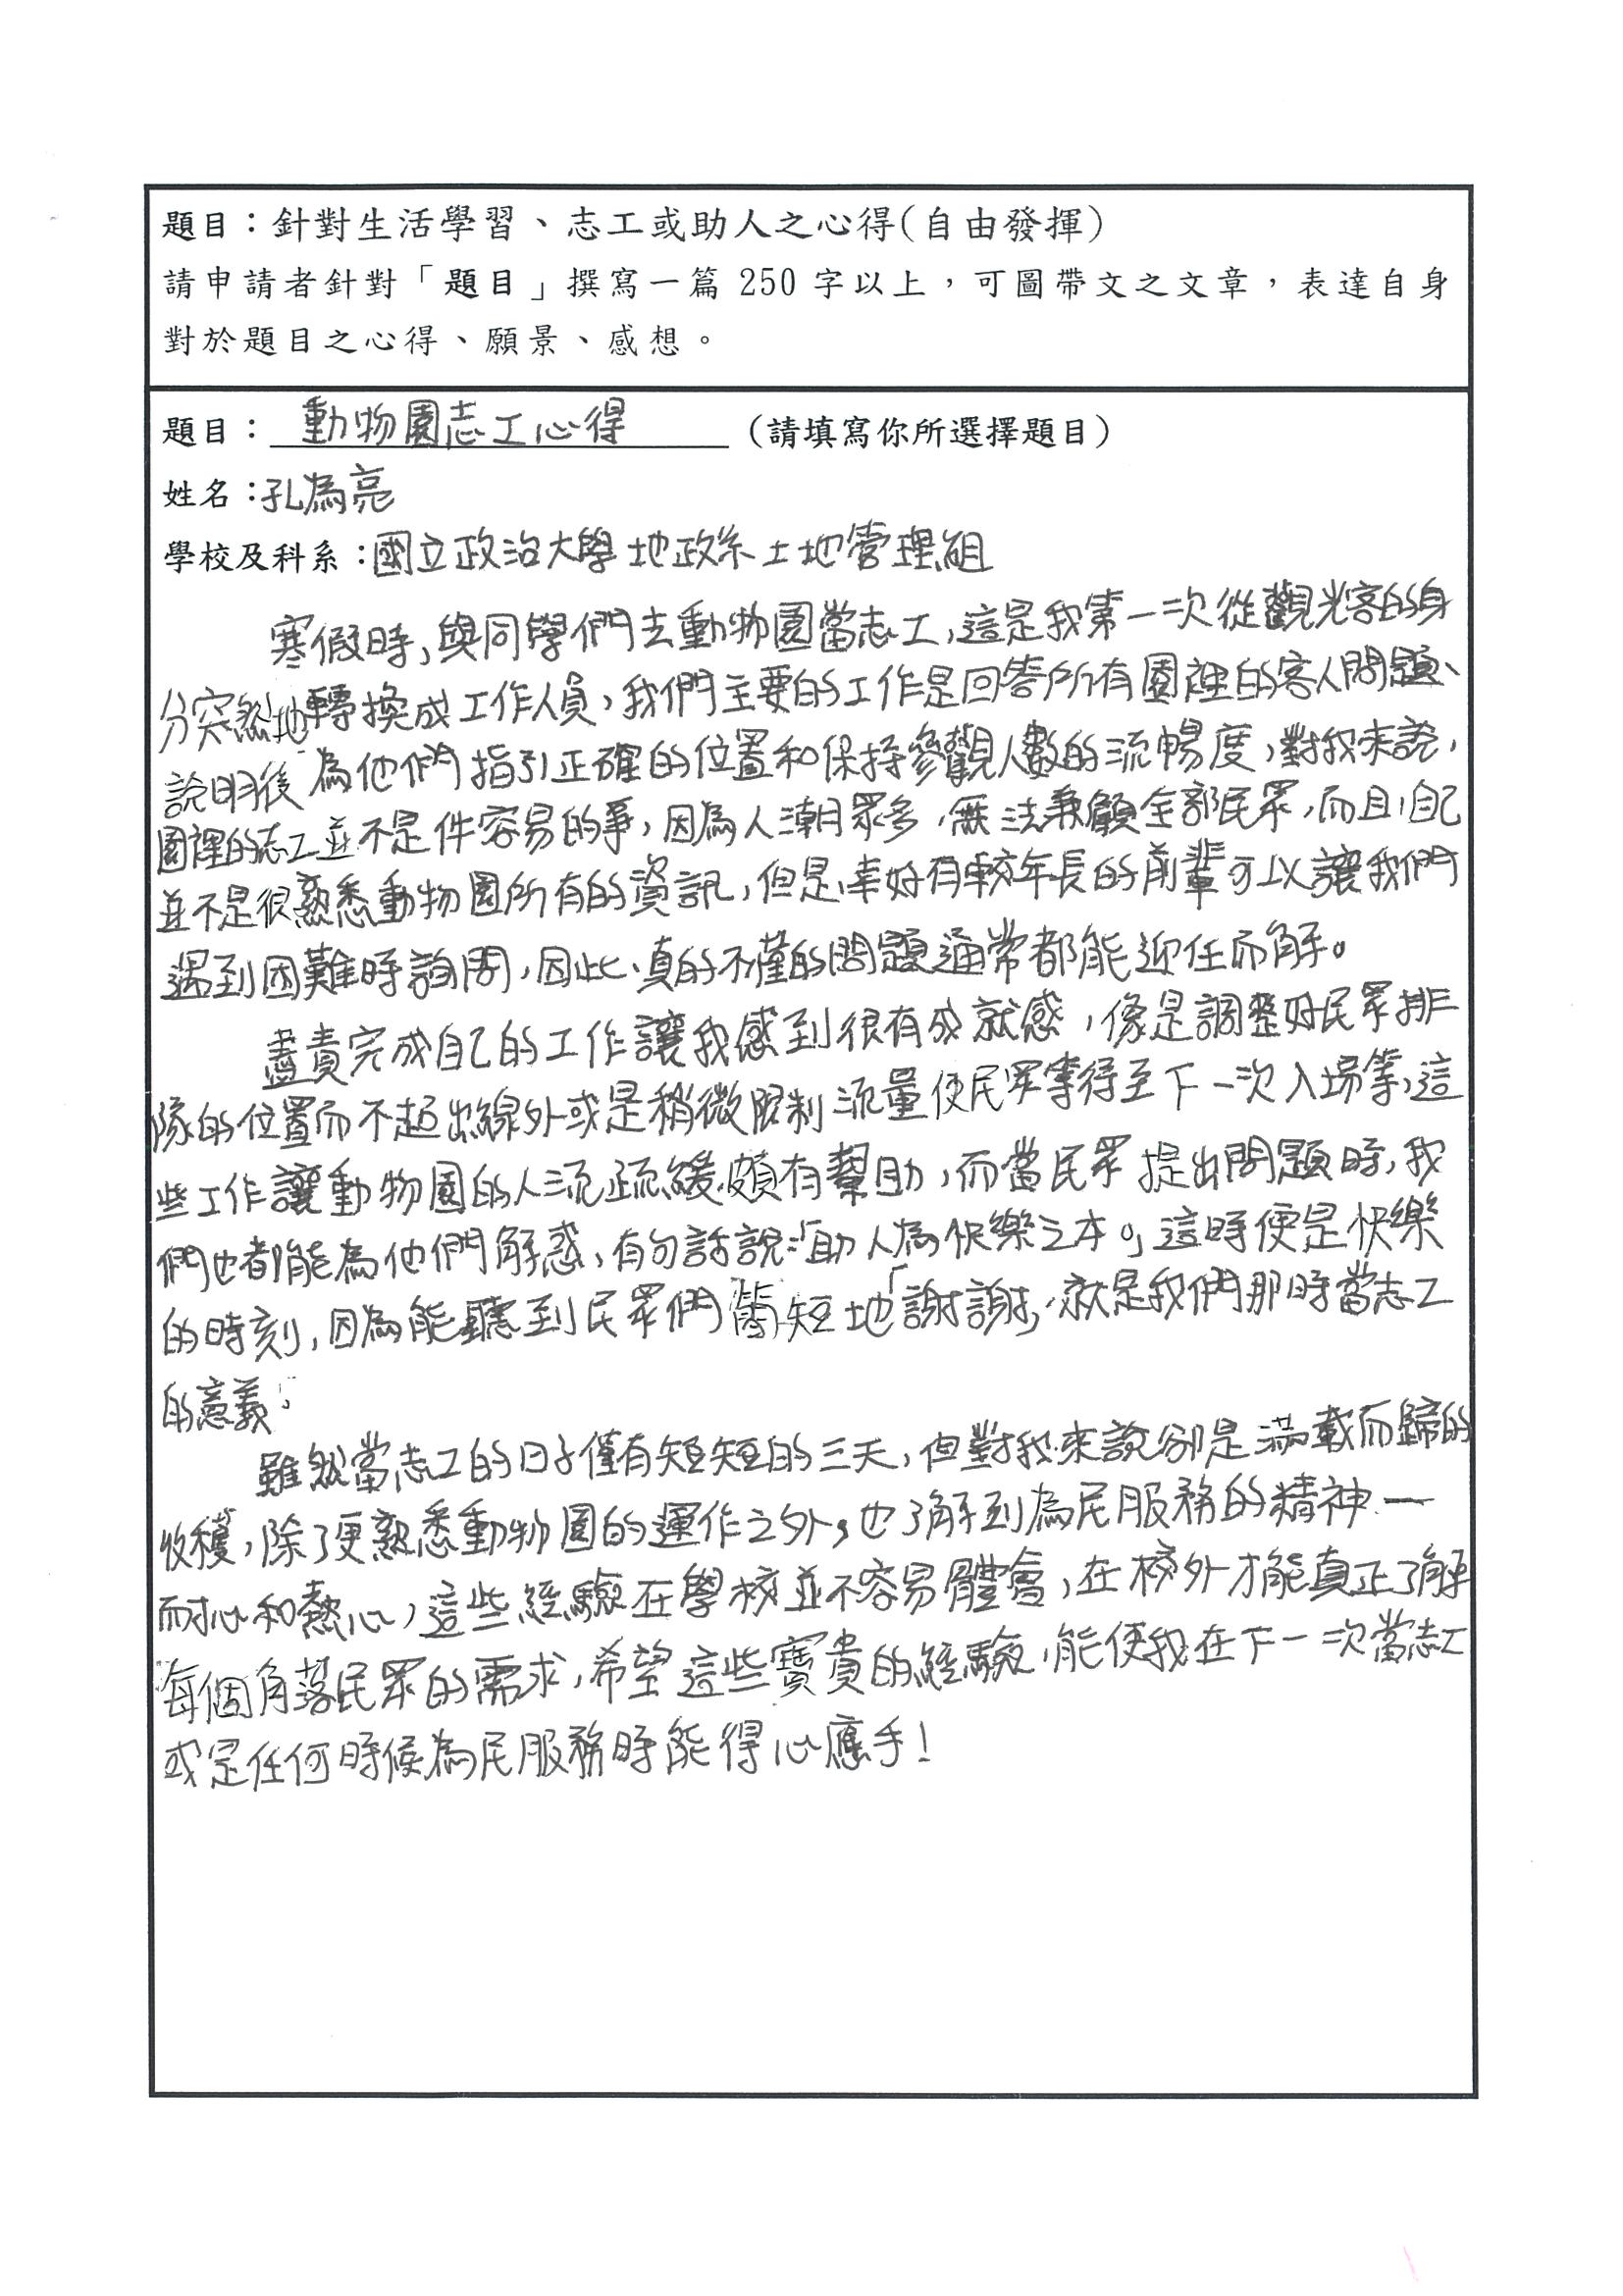 題目：針對生活學習、志工或助人之心得(自由發揮)
請申請者針對「題目」撰寫一篇 250 字以上，可圖帶文之文章，表達自身
對於題目之心得、願景、感想。
題目：動物園志工心得（請填寫你所選擇題目）
姓名：孔為亮
學校及科系：國立政治大學地政系土地管理組
寒假時，與同學們去動物園當志工，這是我第一次從觀光客的身
分突然地轉換成工作人員，我們主要的工作是回答所有園裡的客人問題、
說明後為他們指引正確的位置和保持參觀人數的流暢度，對我來說，
園裡的志工並不是件容易的事，因為人潮眾多，無法兼顧全部民眾，而且，自己
並不是很熟悉動物園所有的資訊，但是，幸好有較年長的前輩可以讓我們
遇到困難時詢問，因此，真的不懂的問題通常都能迎任而解。
盡責完成自己的工作讓我感到很有成就感，像是調整好民眾排
隊的位置而不超出線外或是稍微限制流量使民眾等待至下一次入場等，這
些工作讓動物園的人流疏緩頗有幫助，而當民眾提出問題時，我
們也都能為他們解惑，有句話說：「助人為快樂之本。」這時便是快樂
的時刻，因為能聽到民眾們簡短地「謝謝」，就是我們那時當志工
的意義。
雖然當志工的日子僅有短短的三天，但對我來說卻是滿載而歸的
收穫，除了更熟悉動物園的運作之外，也了解到為民服務的精神—
耐心和熱心，這些經驗在學校並不容易體會，在校外才能真正了解
每個角落民眾的需求，希望這些寶貴的經驗，能使我在下一次當志工
或是任何時候為民服務時能得心應手！